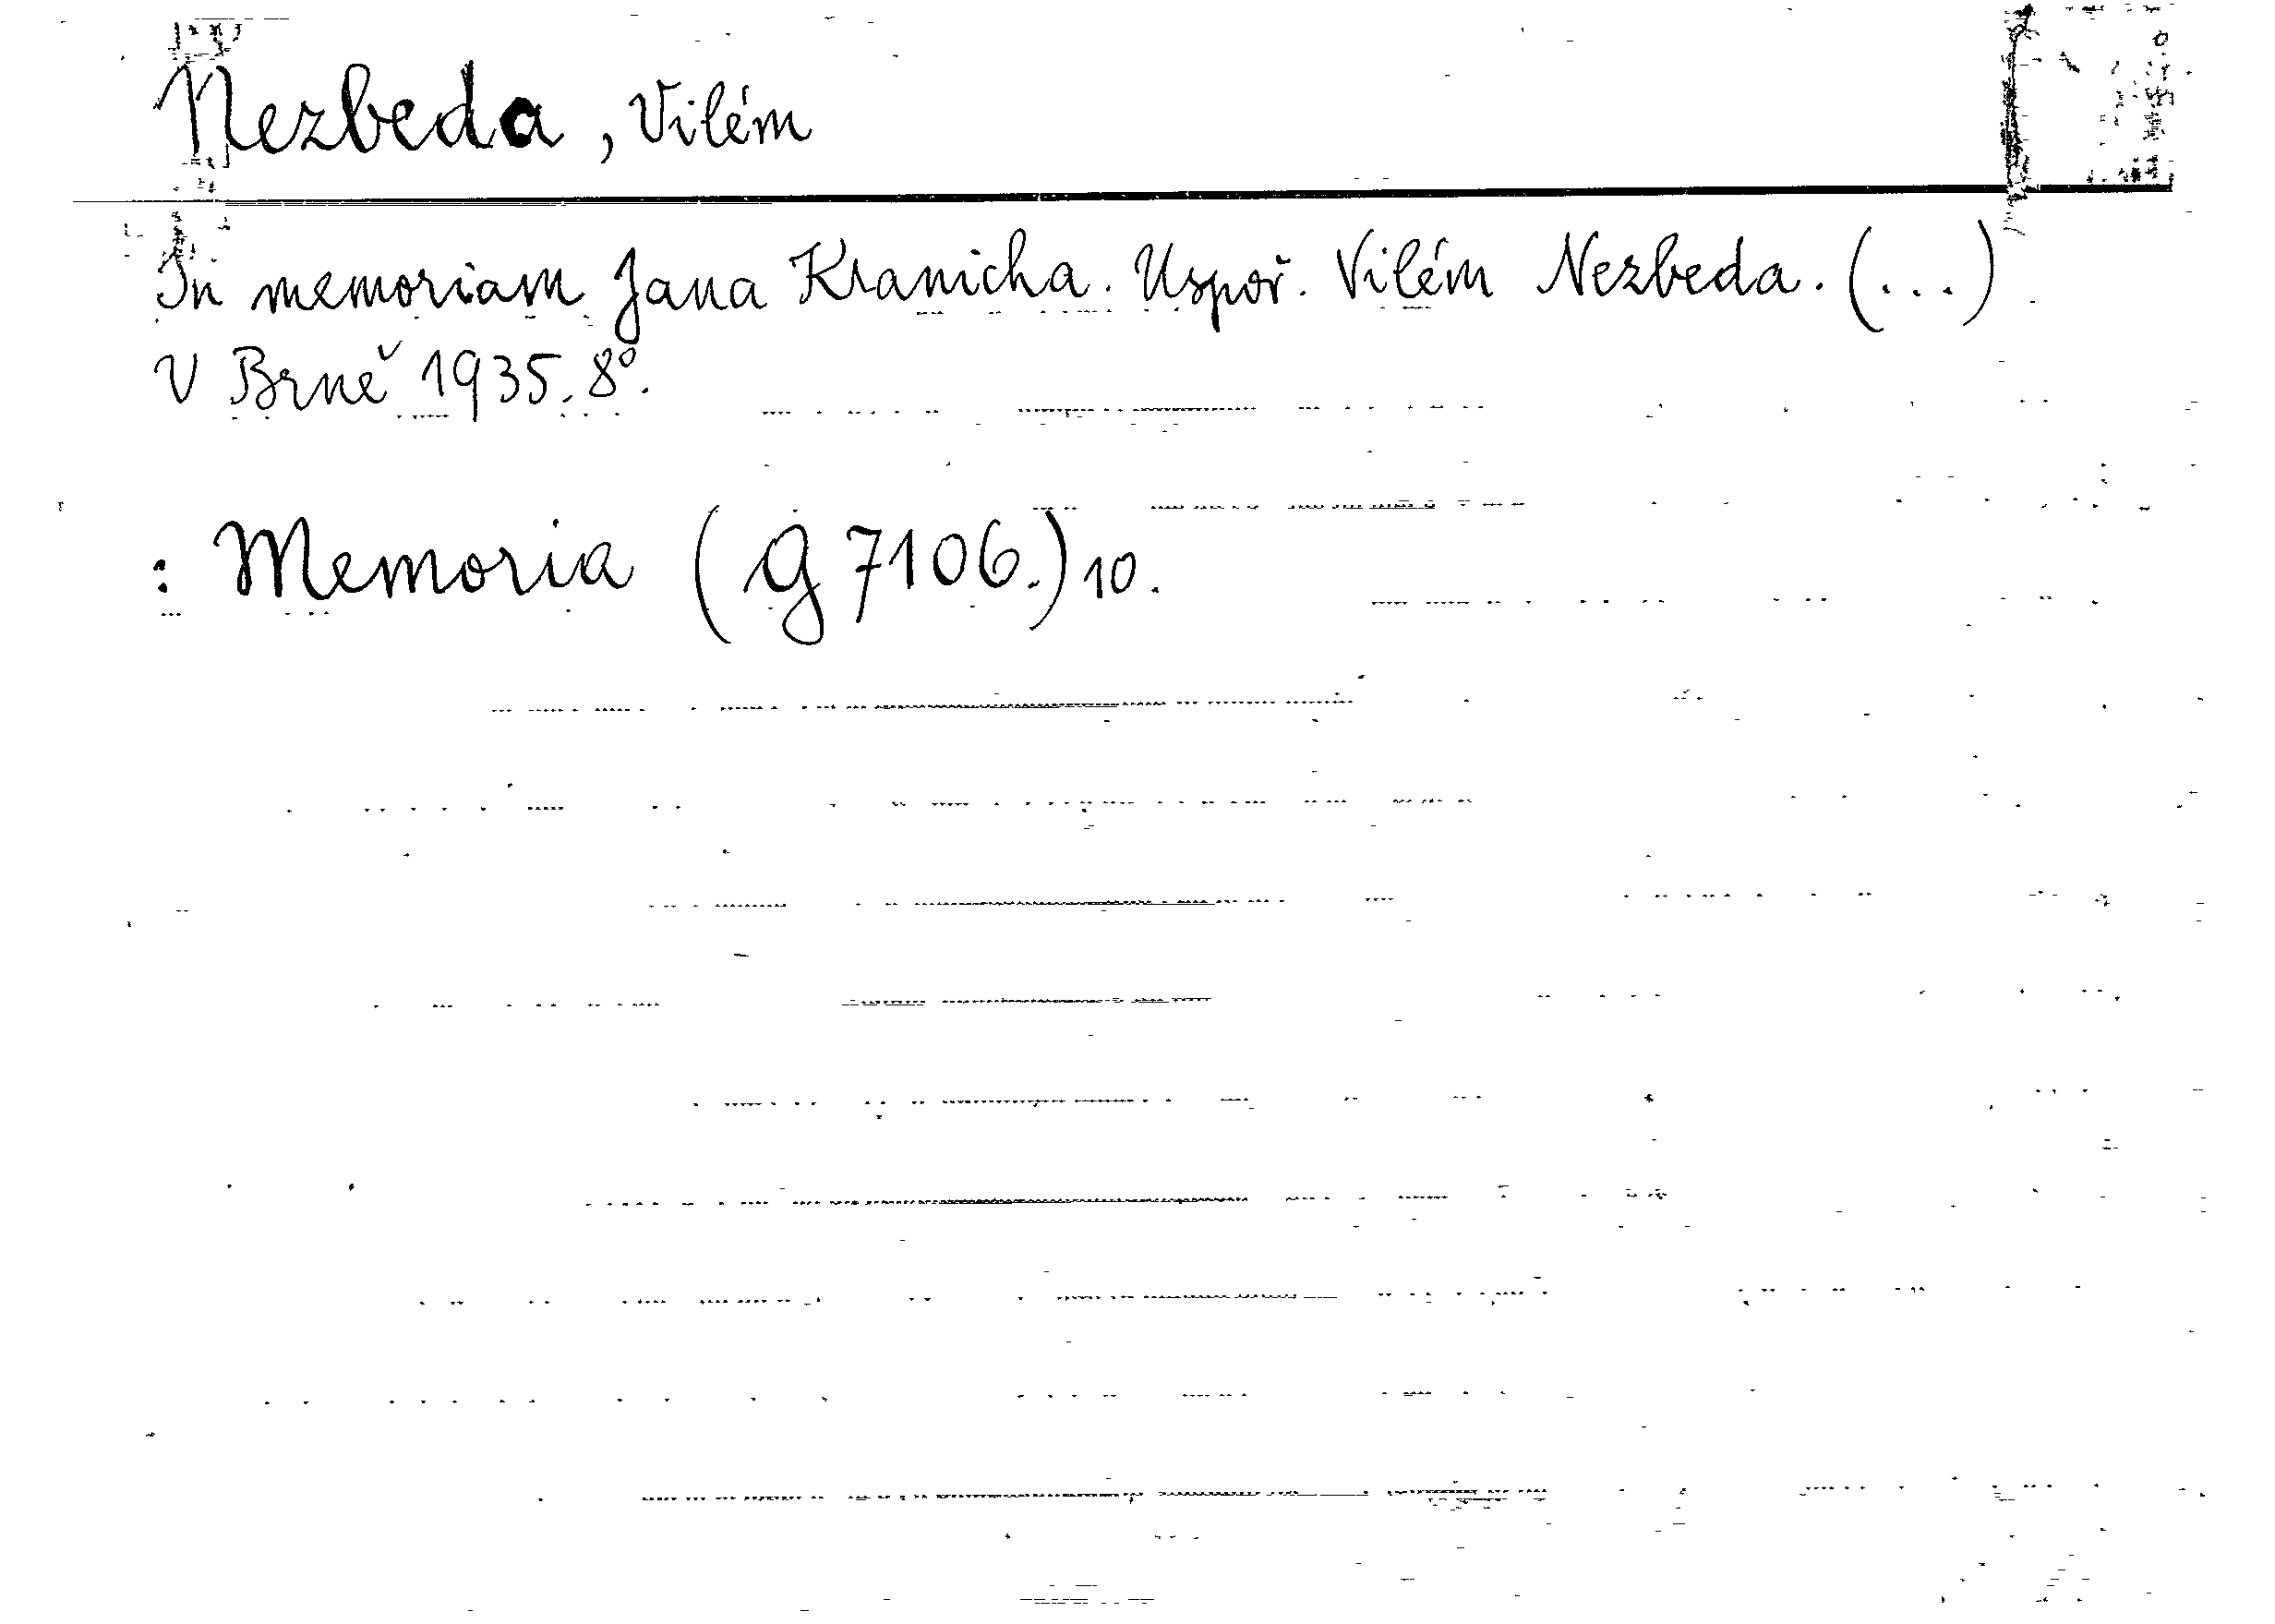 Nezbeda, Vilém
In memoriam Jana Kranicha. Uspoř. Vilém Nezbeda. (...)
V Brně 1935. 8°.
: Memoria (G 7106.) 10.